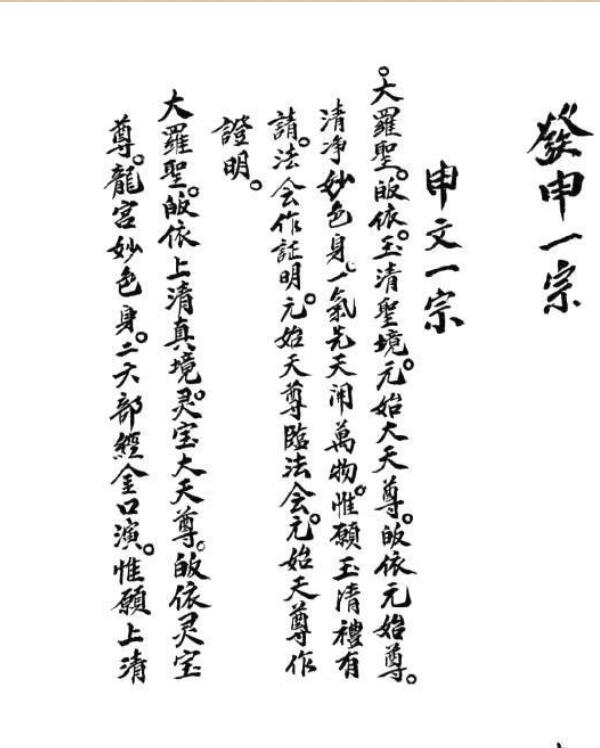 發申一宗
申文一宗
。大羅聖。皈依。玉清聖境。元始大天尊。皈依元始尊。
清净妙色身。一氣先天開萬物。惟願玉清禮有
請。法会作証明。元始天尊臨法会。元始天尊作
證明。
大羅聖。皈依上清真境。灵宝大天尊。皈依灵宝
尊。龍宫妙色身。二六部經金口演。惟願上清